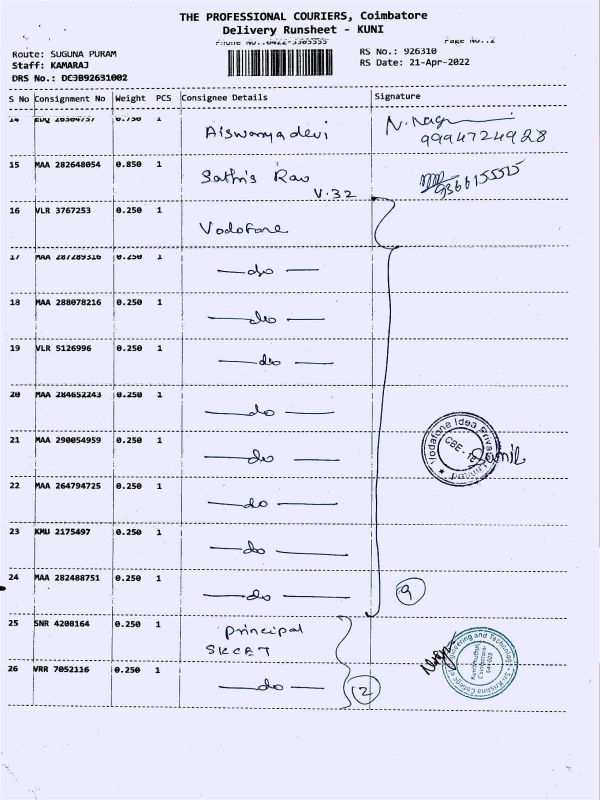 THE PROFESSIONAL COURIERS, Coimbatore
Delivery Runsheet - KUNI
Phone No.:0422-3303333 Page No.:2
Route: SUGUNA PURAM RS No.: 926310
Staff: KAMARAJ RS Date: 21-Apr-2022
DRS No.: DCJB92631002
S No Consignment No Weight PCS Consignee Details Signature
14 EDQ 26304737 0.750 1 Aiswaryadevi N. Nag
9994724928
15 MAA 282648054 0.850 1 Sathis Rao 9366155515
V.32
16 VLR 3767253 0.250 1 Vodofone
17 MAA 287289316 0.250 1 —do—
18 MAA 288078216 0.250 1 —do—
19 VLR 5126996 0.250 1 —do—
20 MAA 284652243 0.250 1 —do—
21 MAA 290054959 0.250 1 —do— Vodafone Idea Private Limited CBE - 18 Tamil
22 MAA 264794725 0.250 1 —do—
23 KMU 2175497 0.250 1 —do—
24 MAA 282488751 0.250 1 —do— 9
25 SNR 4208164 0.250 1 principal
SKCET
26 VRR 7052116 0.250 1 —do— 2
Sri Krishna College of Engineering and Technology Kuniamuthur, Coimbatore-